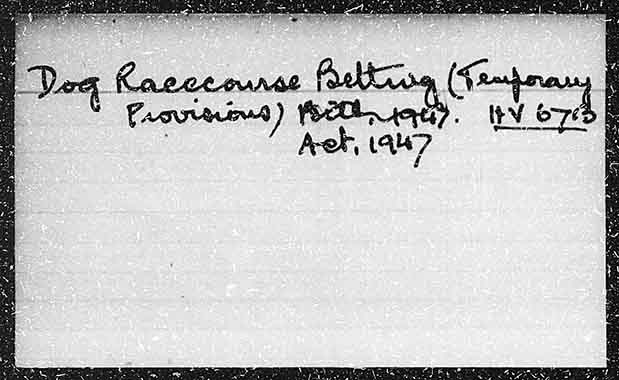 Dog Racecourse Betting (Temporary
Provisions) Bill, 1947. HV 6713
Act, 1947